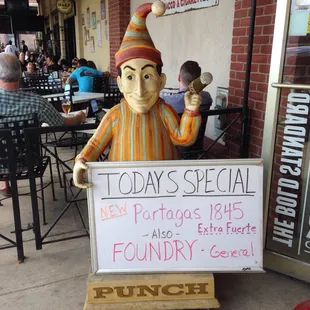 TODAY'S SPECIAL
NEW Partagas 1845
Extra Fuerte
-Also-
FOUNDRY - General
PUNCH
THE BOLD STANDOUT